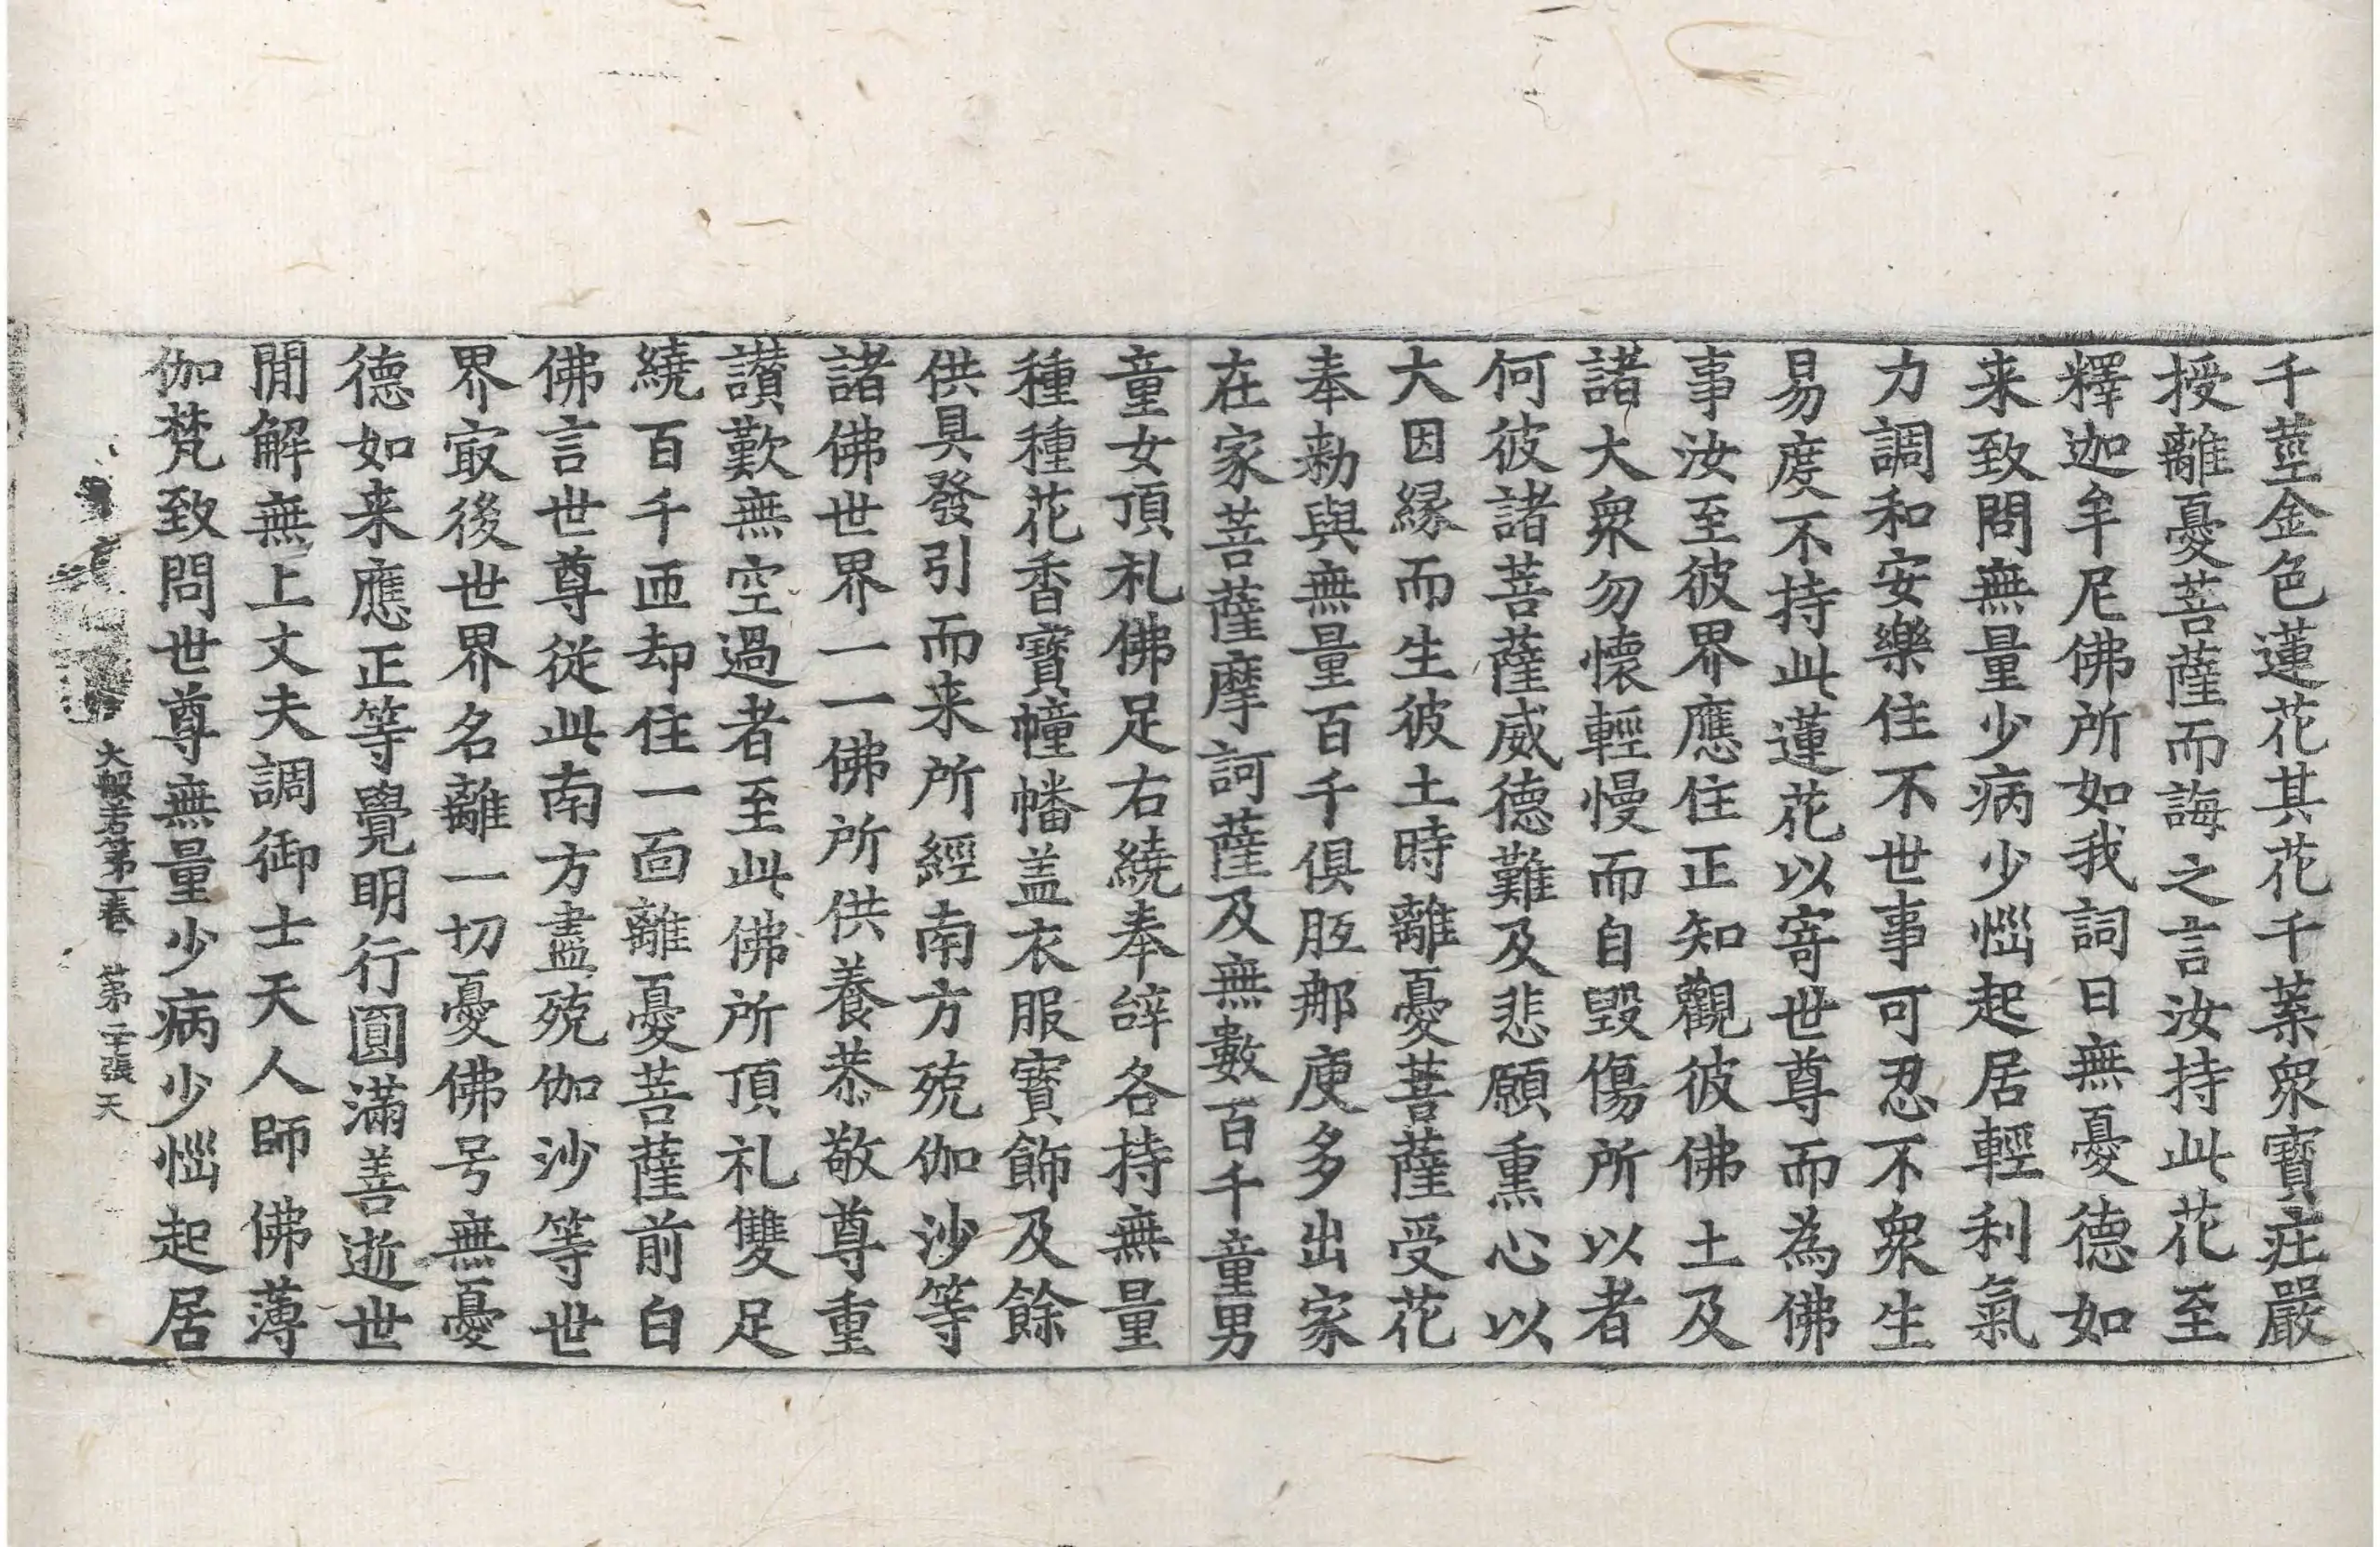 千莖金色蓮花其花千葉衆寶莊嚴
授離憂菩薩而誨之言汝持此花至
釋迦牟尼佛所如我詞曰無憂德如
来致問無量少病少惱起居輕利氣
力調和安樂住不世事可忍不衆生
易度不持此蓮花以寄世尊而為佛
事汝至彼界應住正知觀彼佛土及
諸大衆勿懷輕慢而自毀傷所以者
何彼諸菩薩威德難及悲願熏心以
大因緣而生彼土時離憂菩薩受花
奉勅與無量百千俱胝那庾多出家
在家菩薩摩訶薩及無數百千童男
童女頂礼佛足右繞奉辝各持無量
種種花香寶幢幡盖衣服寶飾及餘
供具發引而来所經南方殑伽沙等
諸佛世界一一佛所供養恭敬尊重
讃歎無空過者至此佛所頂礼雙足
繞百千匝却住一面離憂菩薩前白
佛言世尊從此南方盡殑伽沙等世
界冣後世界名離一切憂佛号無憂
德如来應正等覺明行圓滿善逝世
閒解無上丈夫調御士天人師佛薄
伽梵致問世尊無量少病少惱起居
大般若第一卷 第二十張 天